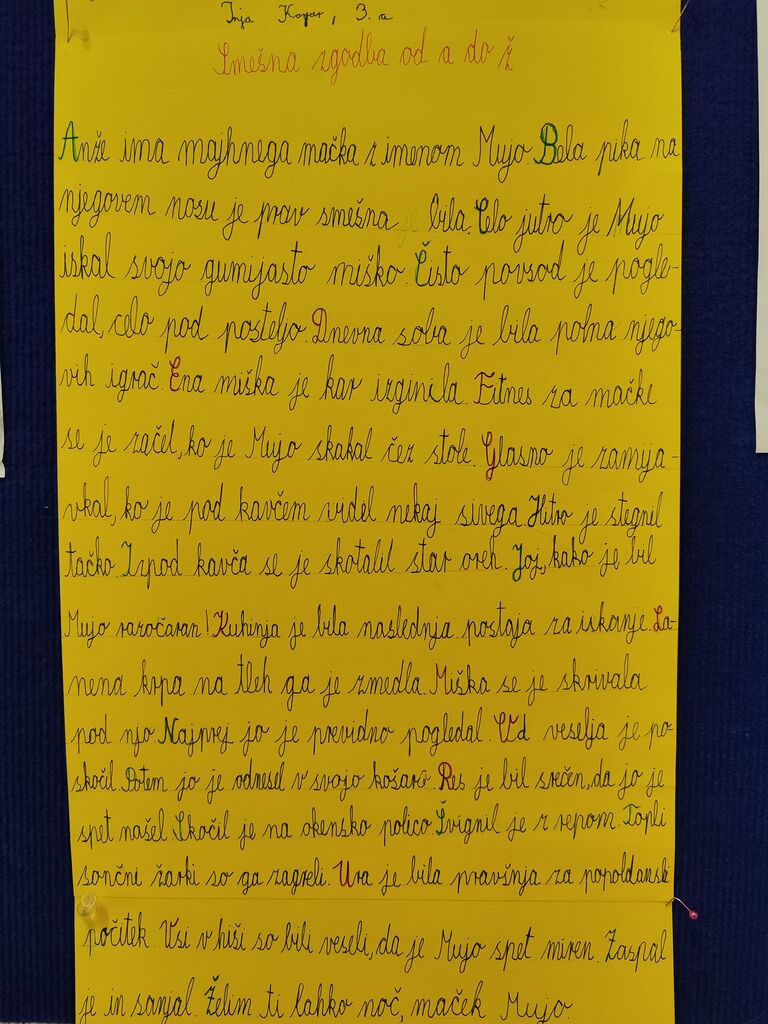 Inja Kopar, 3. a
Smešna zgodba od a do ž
Anže ima majhnega mačka z imenom Mujo. Bela pika na
njegovem nosu je prav smešna bila. Celo jutro je Mujo
iskal svojo gumijasto miško. Čisto povsod je pogle-
dal, celo pod posteljo. Dnevna soba je bila polna njego-
vih igrač. Ena miška je kar izginila. Fitnes za mačke
se je začel, ko je Mujo skakal čez stole. Glasno je zamija-
vkal, ko je pod kavčem videl nekaj sivega. Hitro je stegnil
tačko. Izpod kavča se je skotalil star oreh. Joj, kako je bil
Mujo razočaran! Kuhinja je bila naslednja postaja za iskanje. La-
nena krpa na tleh ga je zmedla. Miška se je skrivala
pod njo. Najprej jo je previdno pogledal. Od veselja je po-
skočil. Potem jo je odnesel v svojo košaro. Res je bil srečen, da jo je
spet našel. Skočil je na okensko polico. Švignil je z repom. Topli
sončni žarki so ga zagreli. Ura je bila pravšnja za popoldanski
počitek. Vsi v hiši so bili veseli, da je Mujo spet miren. Zaspal
je in sanjal. Želim ti lahko noč, maček Mujo.